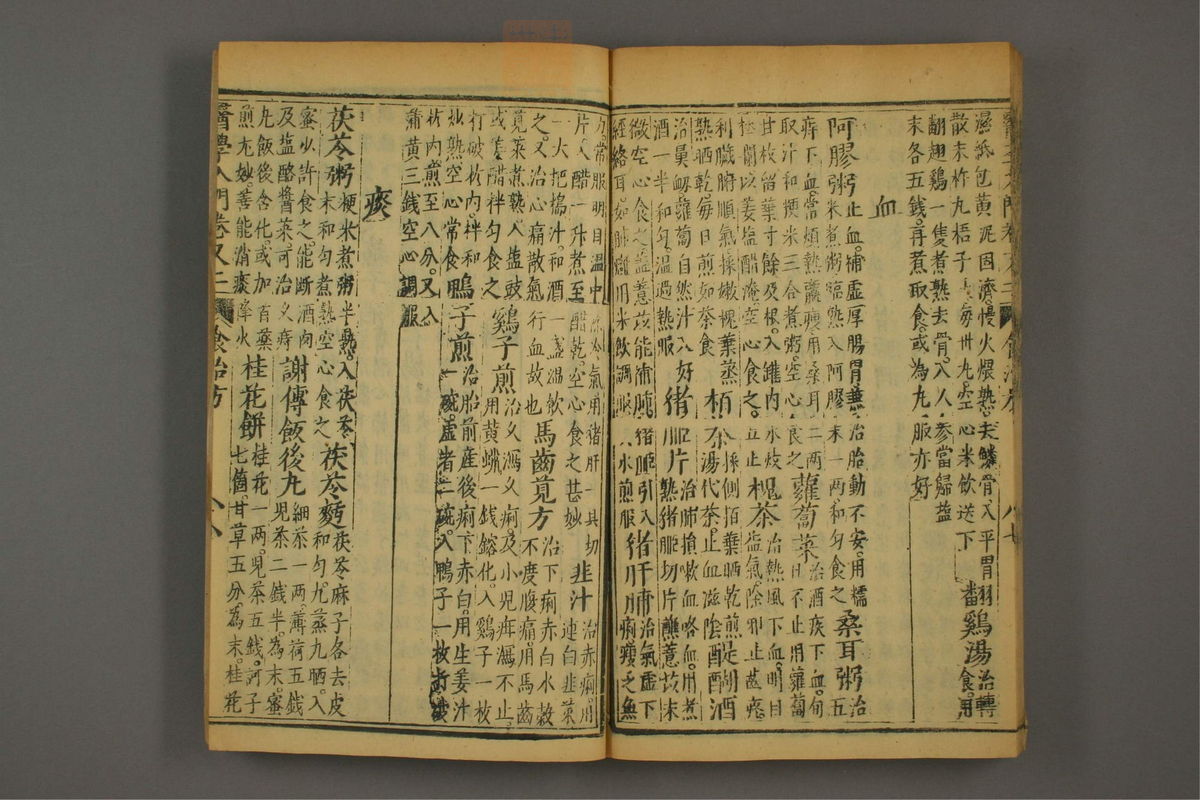 濕紙包黃泥固濟慢火煨熟去鱗骨入平胃
散末杵丸梧子大每卅丸空心米飲送下
翻翅鷄一隻煮熟去骨入人參當歸盐
末各五錢再煮取食或為丸服亦好
翻鷄湯治轉食用
血
阿膠粥止血補虛厚腸胃兼治胎動不安用糯
米煮粥臨熟入阿膠末一兩和勻食之
桑耳粥治五
痔下血常煩熱羸瘦用桑耳二兩
取汁和粳米三合煮粥空心食之
蘿蔔菜治酒疾下血旬日不止用蘿蔔
甘枝留葉寸餘及根入罐内水炆
極爛以姜塩醋淹空心食之立止
槐茶治熱風下血明目
益氣除邪止
利臟腑順氣揉嫩槐葉蒸
熟晒乾每日煎如茶食
栢茶採側栢葉晒乾煎湯代茶止血滋陰
治鼻衂蘿蔔自然汁入好
酒一半和勻温過熱服
猪胰片治肺損嗽血咯血用煮
熟猪胰切片蘸薏苡末
微空心食之蓋薏苡能補肺猪胰引入
經絡耳如肺癰用米飲調服
猪肝
方常服明目温中
氣用猪肝一具切
片入醋一升煮至醋乾空心食之甚妙
韭汁治赤痢用連白韭菜
一大把搗汁和酒一盞温飲
之又治心痛散氣行血故也
馬齒莧方治下痢赤白水穀
不度腹痛用馬齒
莧菜煮熟入塩豉
或姜醋拌勻食之
鷄子煎治久瀉久痢及小児疳瀉不止
用黃蠟一錢鎔化入鷄子一枚
打破枚内拌和
炒熟空心常食
鴨子煎治胎前産後痢下赤白用生姜汁
一碗虛者二碗入鴨子一枚
枚内煎至八分又入
蒲黃三錢空心調服
痰
茯苓粥粳米煮粥半熟入茯苓
末和勻煮熟空心食之
茯苓麪茯苓麻子各去皮
和勻九蒸九晒入
蜜少許食之能断酒肉
及塩酪醬菜可治久痔
謝傳飯後丸細茶一兩薄荷五錢
児茶二錢半為末蜜
丸飯後含化或加百藥
煎尤妙善能消痰降火
桂花餅桂花一兩児茶五錢訶子
七箇甘草五分為末桂花
醫學入門卷又二
食治方
八八